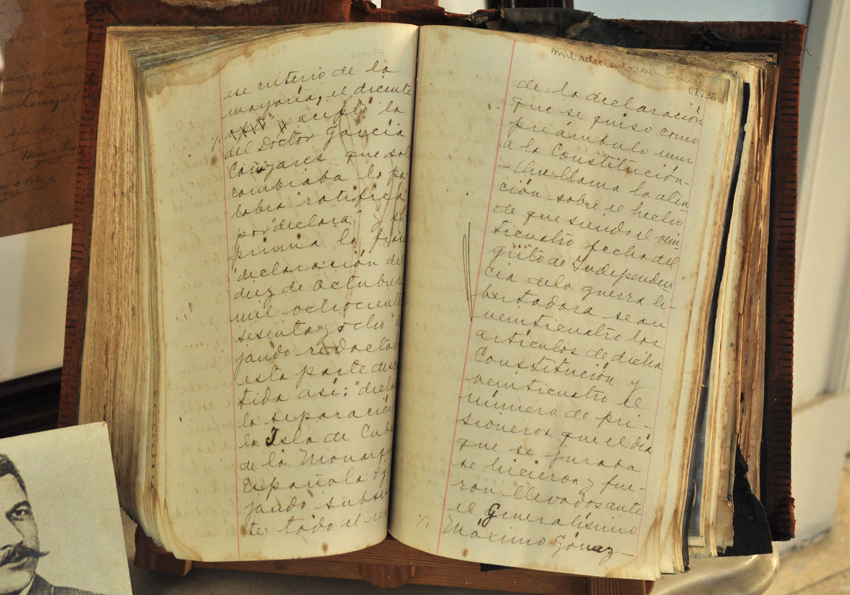 ese criterio de la
mayoría, el diciente
aceptó la
del Doctor García
Cañizares que sol
cambiaba la pa
labra ratifica
por "declara" y su
prima la frase
declaración de
diez de Octubre de
mil ochocient
sesenta y ocho
jando redacta
esta parte discu
tida así; "decla
la separación
la Isla de Cuba
de la Monarq
Española
jando subsis
te todo el re
de la declaración
que se quiso como
preámbulo unir
a la Constitución.
- Uno llama la aten
ción sobre el hecho
de que siendo el vein
ticuatro fecha del
grito de Independen
cia de la guerra li-
bertadora sean
veinticuatro los
artículos de dicha
Constitución y
veinticuatro el
número de pri-
sioneros que el día
que se juraba
se hicieron y fue-
ron llevados ante
el Generalísimo
Máximo Gómez -